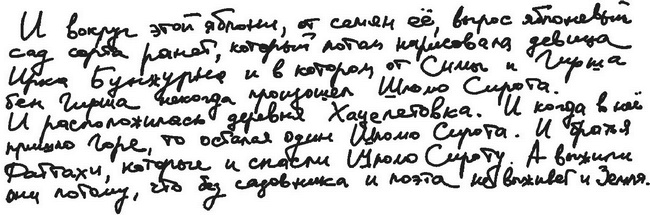 И вокруг этой яблони, от семян её, вырос яблоневый
сад сорта ранет, который потом нарисовала девица
Ирка Бунжурна и в котором от Симы и Гирша
бен Гирша некогда произошел Шломо Сирота.
И расположилась деревня Хацепетовка. И когда в неё
пришло Горе, то остался один Шломо Сирота. И братья
Фаттахи, которые и спасли Шломо Сироту. А выжили
они потому, что без садовника и поэта не выживет и Земля.